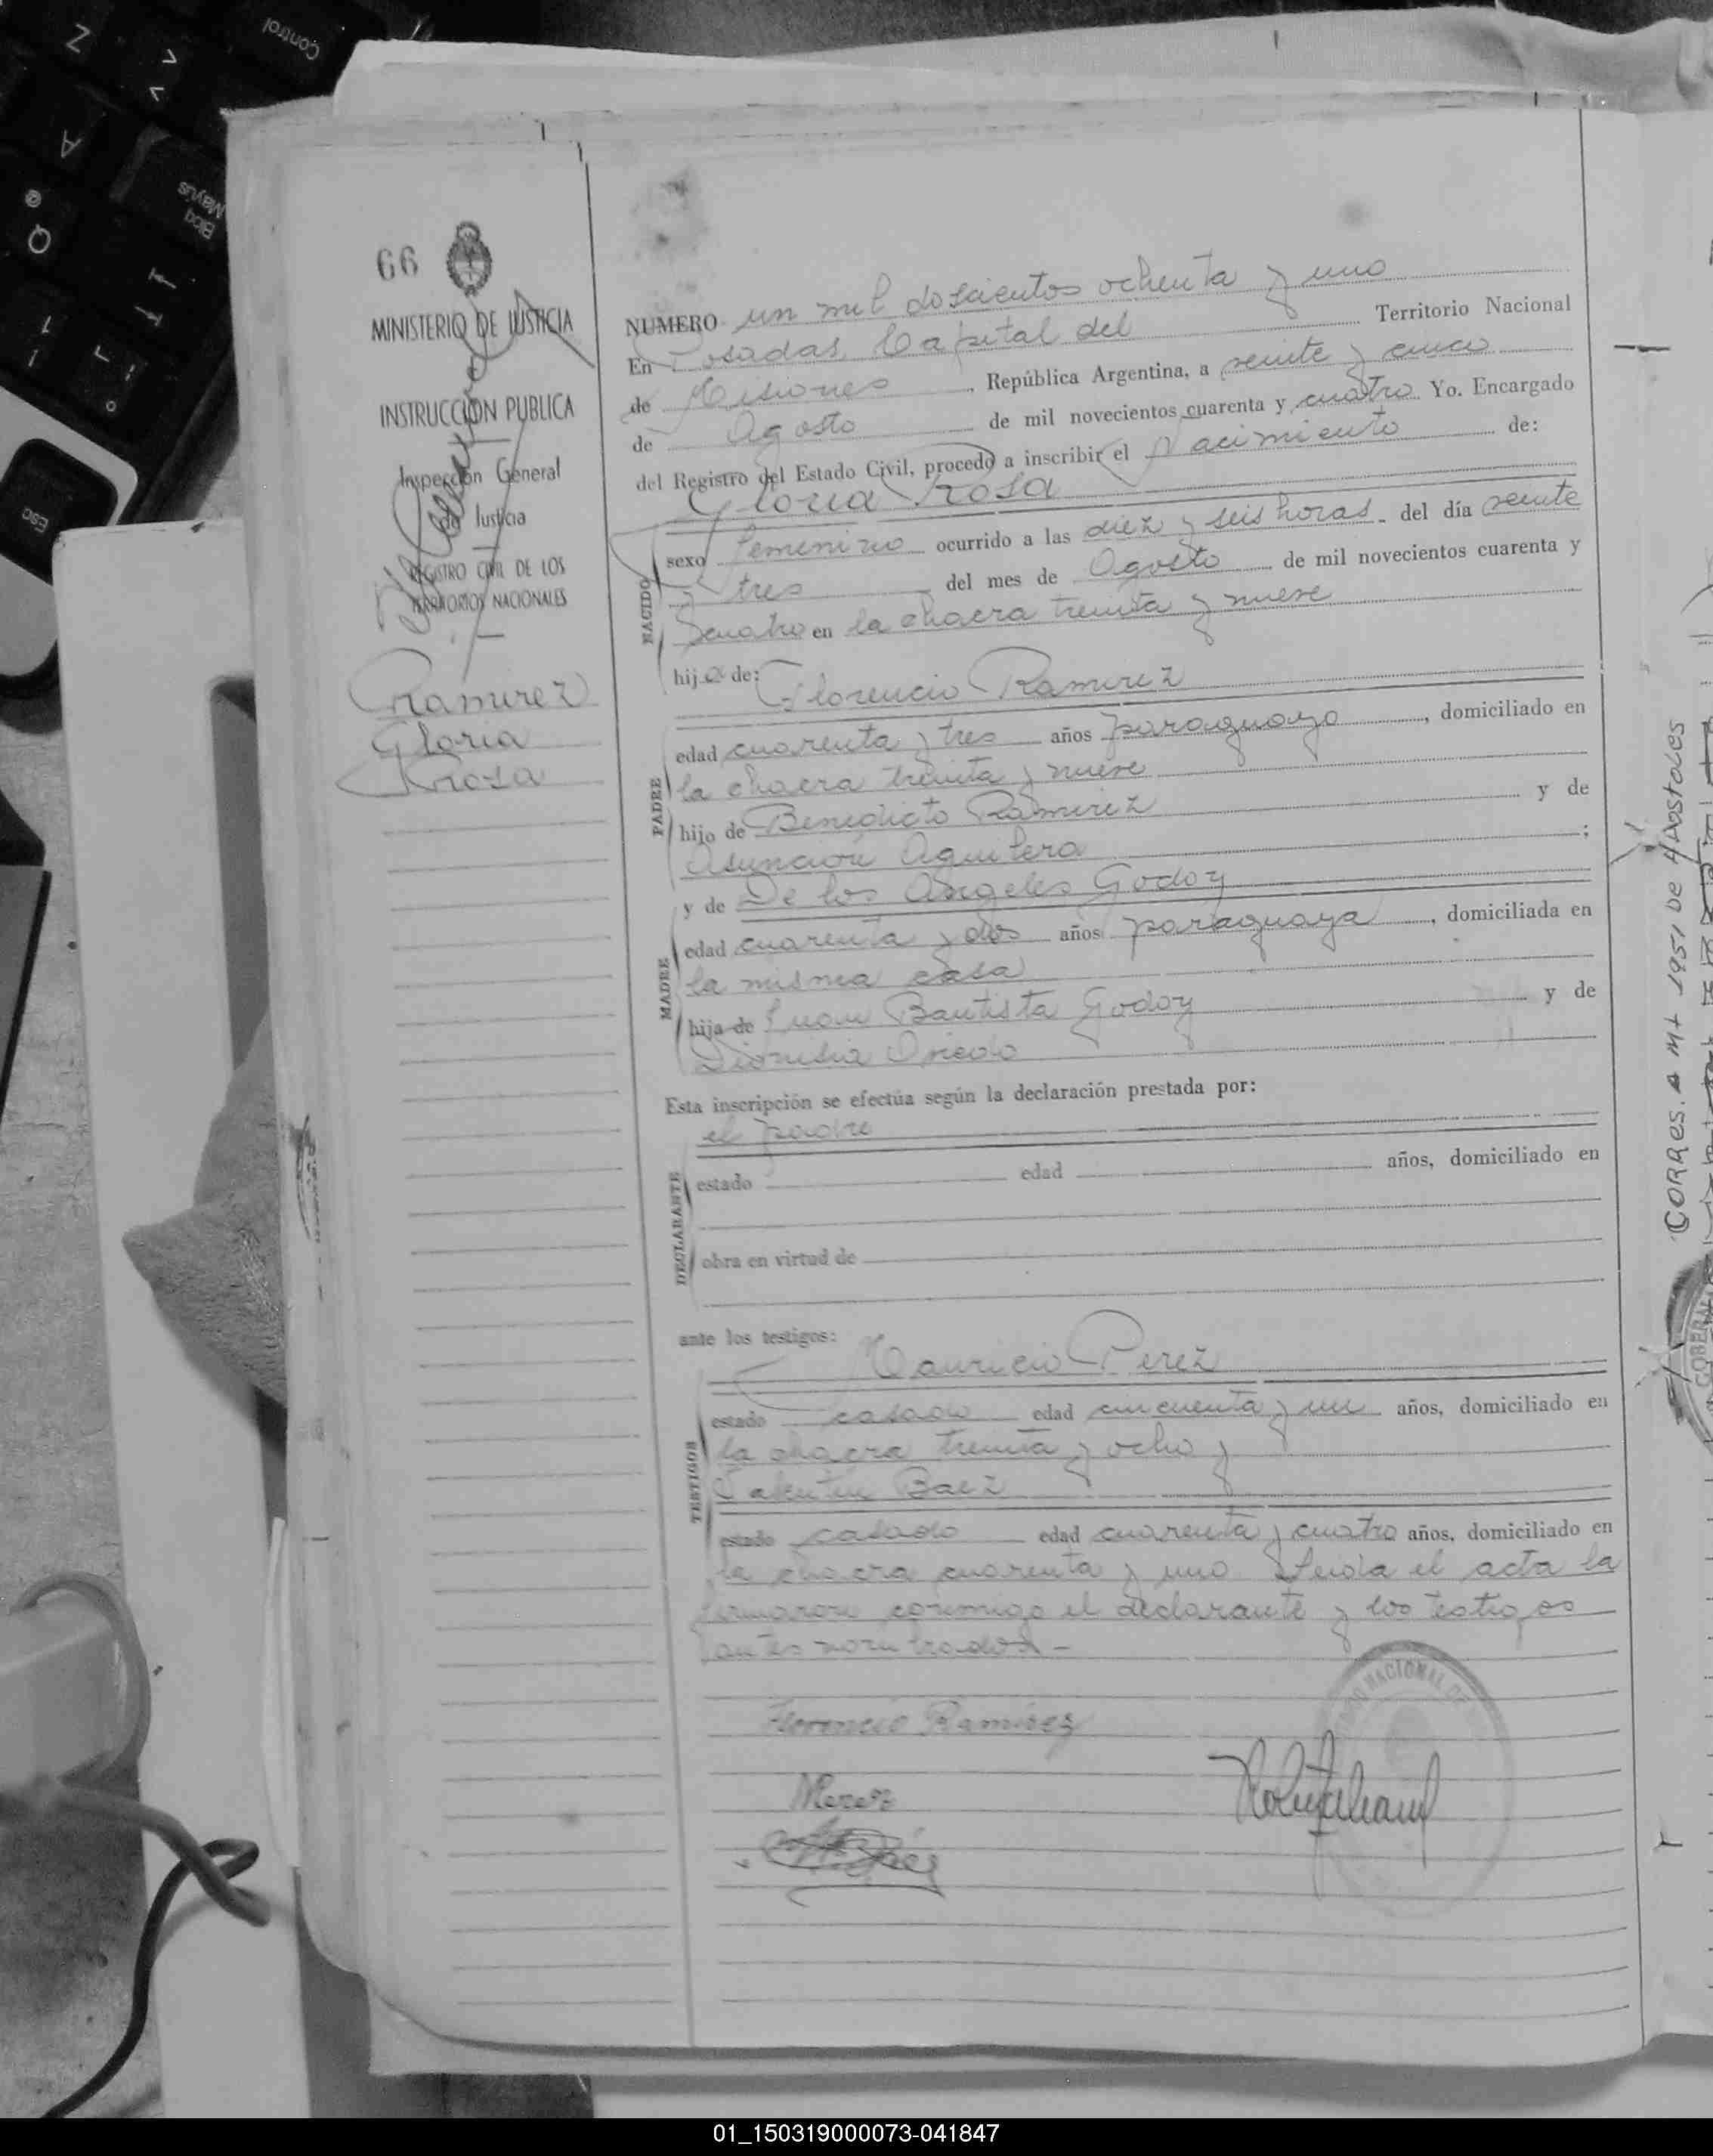 66
MINISTERIO DE JUSTICIA
E
INSTRUCCION PUBLICA
Inspección General
de Justicia
REGISTRO CIVIL DE LOS
TERRITORIOS NACIONALES
Ramirez
Gloria
Rosa
NUMERO un mil doscientos ochenta y uno
En Posadas, Capital del Territorio Nacional
de Misiones, República Argentina, a veinte y cinco
de Agosto de mil novecientos cuarenta y cuatro Yo. Encargado
del Registro del Estado Civil, procedo a inscribir el Nacimiento de:
Gloria Rosa
NACIDO
sexo femenino ocurrido a las diez y seis horas del día veinte
y tres del mes de Agosto de mil novecientos cuarenta y
cuatro en la chacra treinta y nueve
hija de: Florencio Ramirez
PADRE
edad cuarenta y tres años paraguayo, domiciliado en
la chacra treinta y nueve
hijo de Benedicto Ramirez y de
Asunción Aguilera;
y de De los Angeles Godoy
MADRE
edad cuarenta y dos años paraguaya, domiciliada en
la misma casa
hija de Juan Bautista Godoy y de
Dionisia Oviedo
Esta inscripción se efectúa según la declaración prestada por:
el padre
DECLARANTE
estado edad años, domiciliado en
obra en virtud de
ante los testigos:
Mauricio Perez
TESTIGOS
estado casado edad cincuenta y un años, domiciliado en
la chacra treinta y ocho y
Valentin Baez
estado casado edad cuarenta y cuatro años, domiciliado en
la chacra cuarenta y uno Leída el acta la
firmaron conmigo el declarante y los testigos
antes nombrados.-
Florencio Ramirez
MPerez
CORRES. A Mt 1951 DE APOSTOLES
01_150319000073-041847